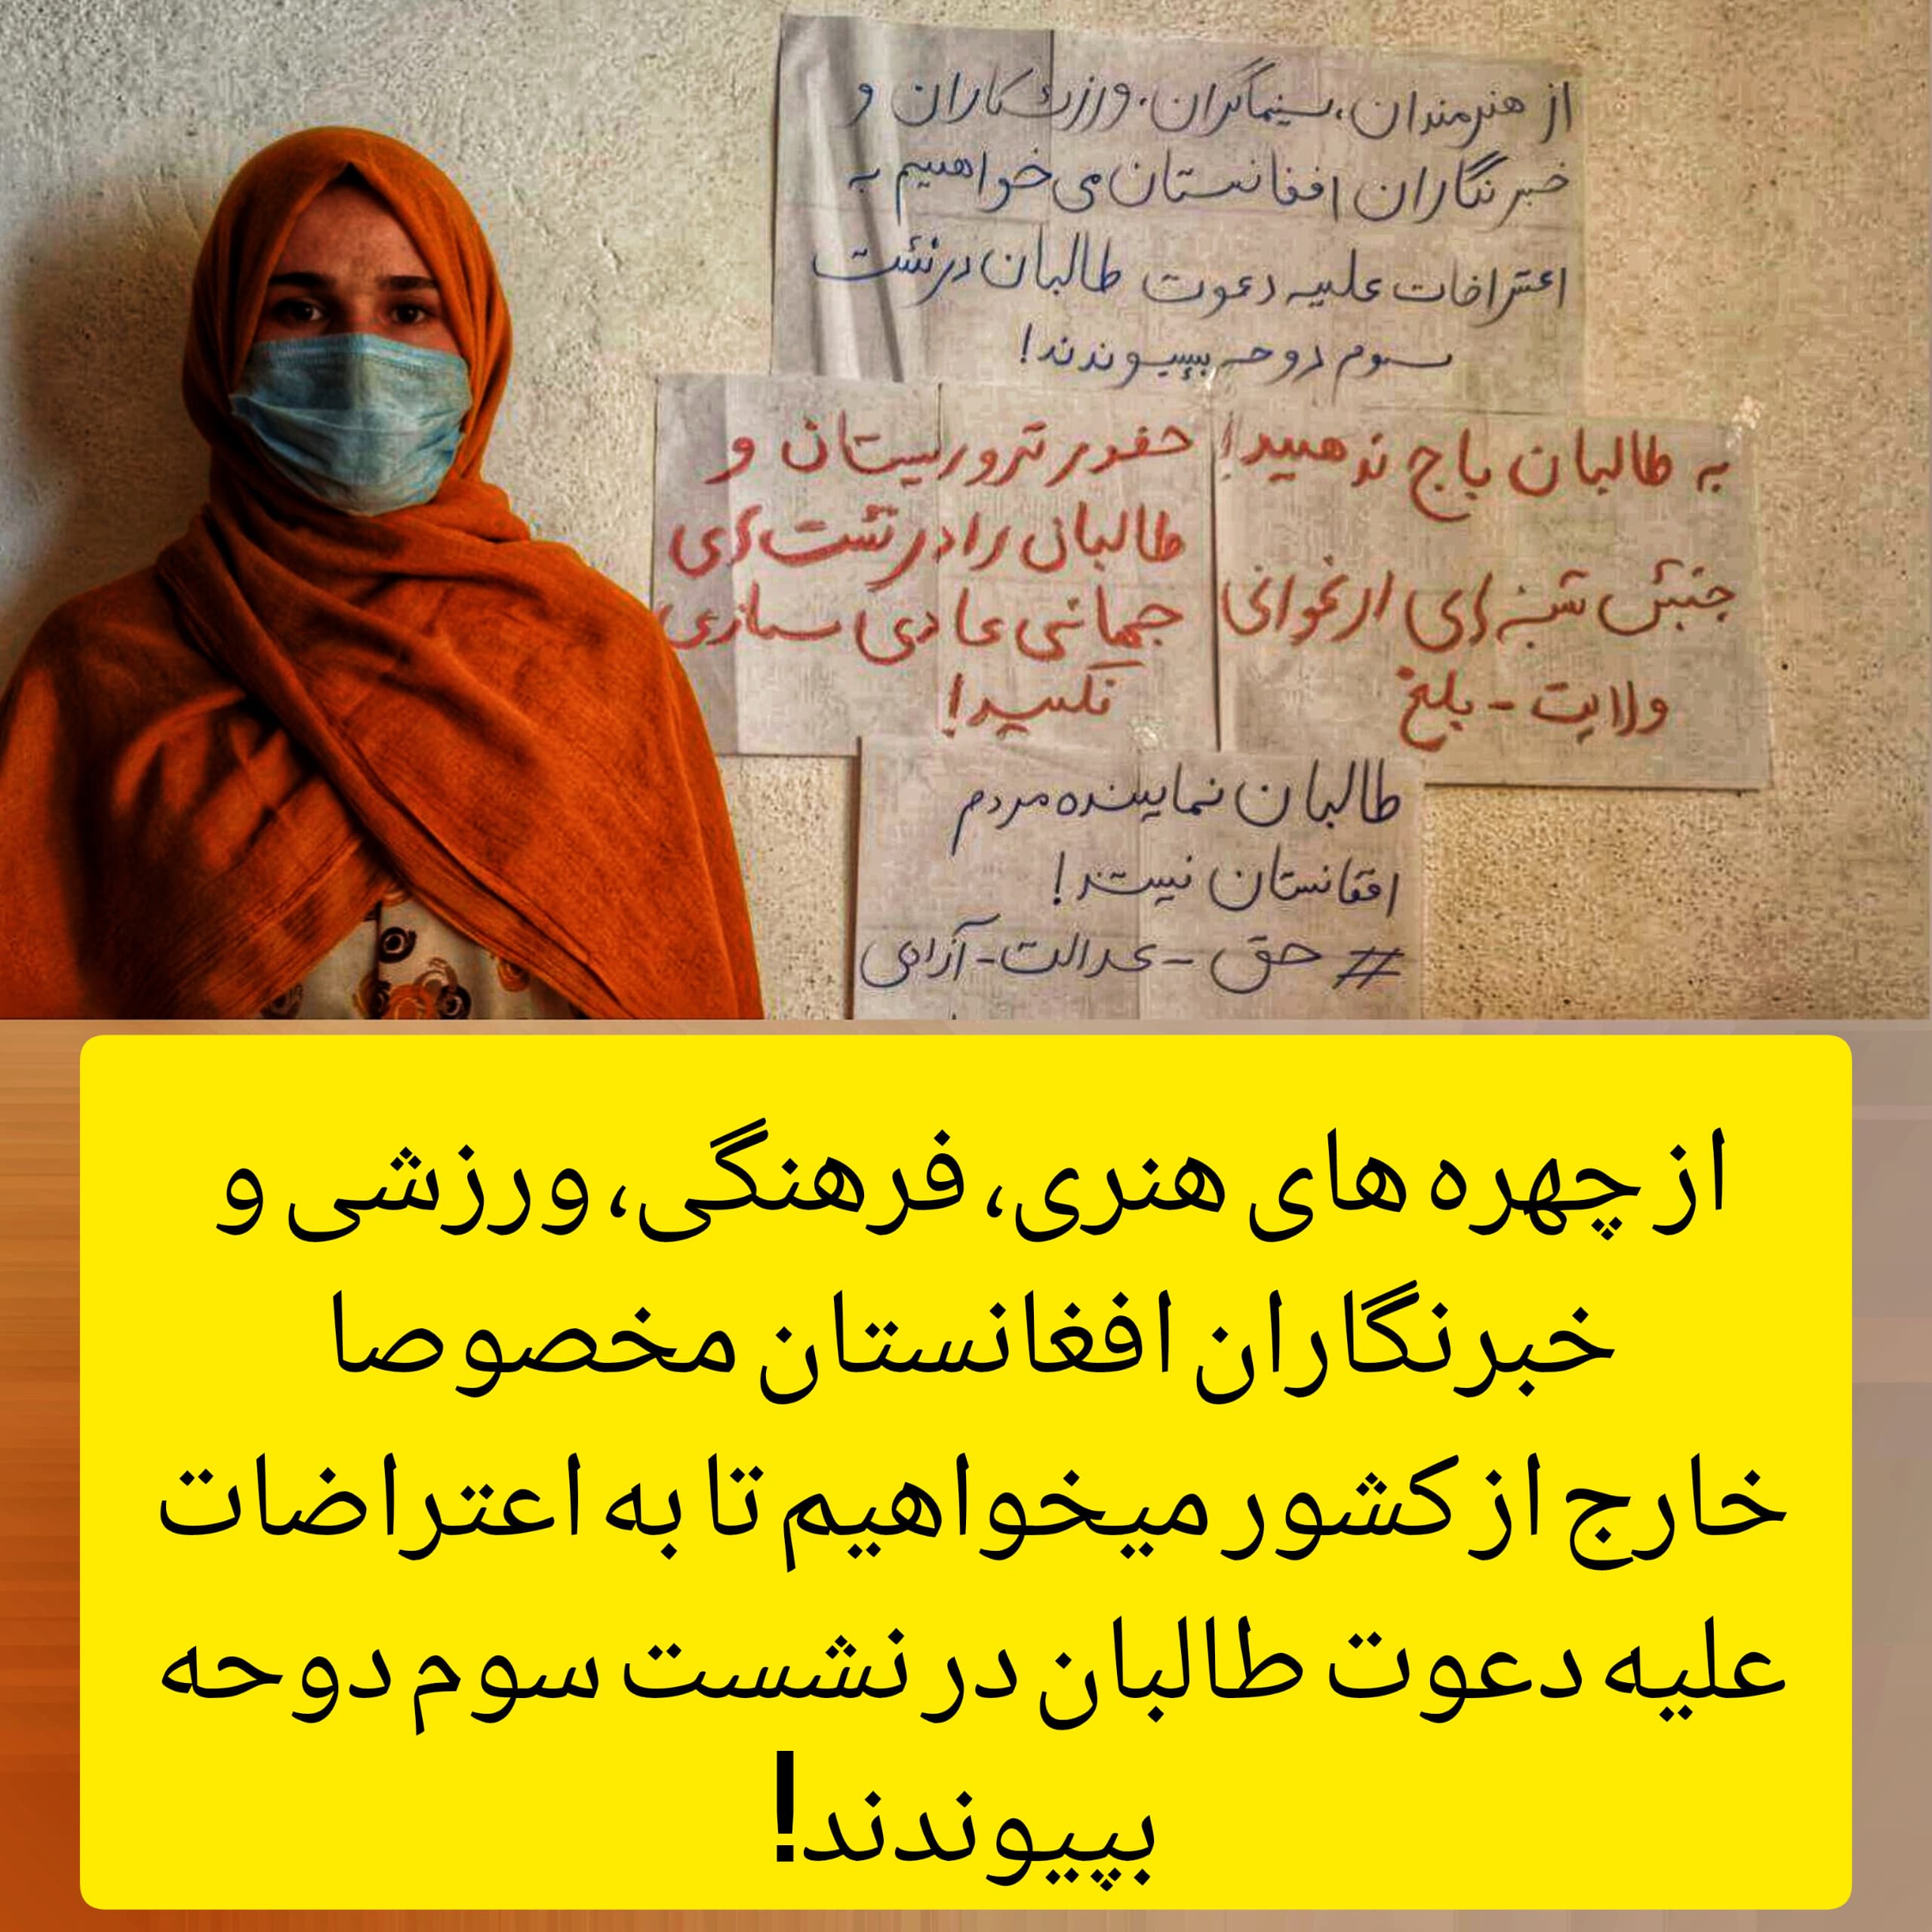 از هنرمندان، سینماگران، ورزشکاران و
خبرنگاران افغانستان می خواهیم به
اعتراضات علیه دعوت طالبان در نشست
سوم دوحه بپیوندند!
به طالبان باج ندهید!
جنبش شنبه های ارغوانی
ولایت - بلخ
حضور تروریستان و
طالبان را در نشست های
جهانی عادی سازی
نکنید!
طالبان نماینده مردم
افغانستان نیستند!
# حق - عدالت - آزادی
از چهره های هنری، فرهنگی، ورزشی و
خبرنگاران افغانستان مخصوصا
خارج از کشور میخواهیم تا به اعتراضات
علیه دعوت طالبان در نشست سوم دوحه
بپیوندند!